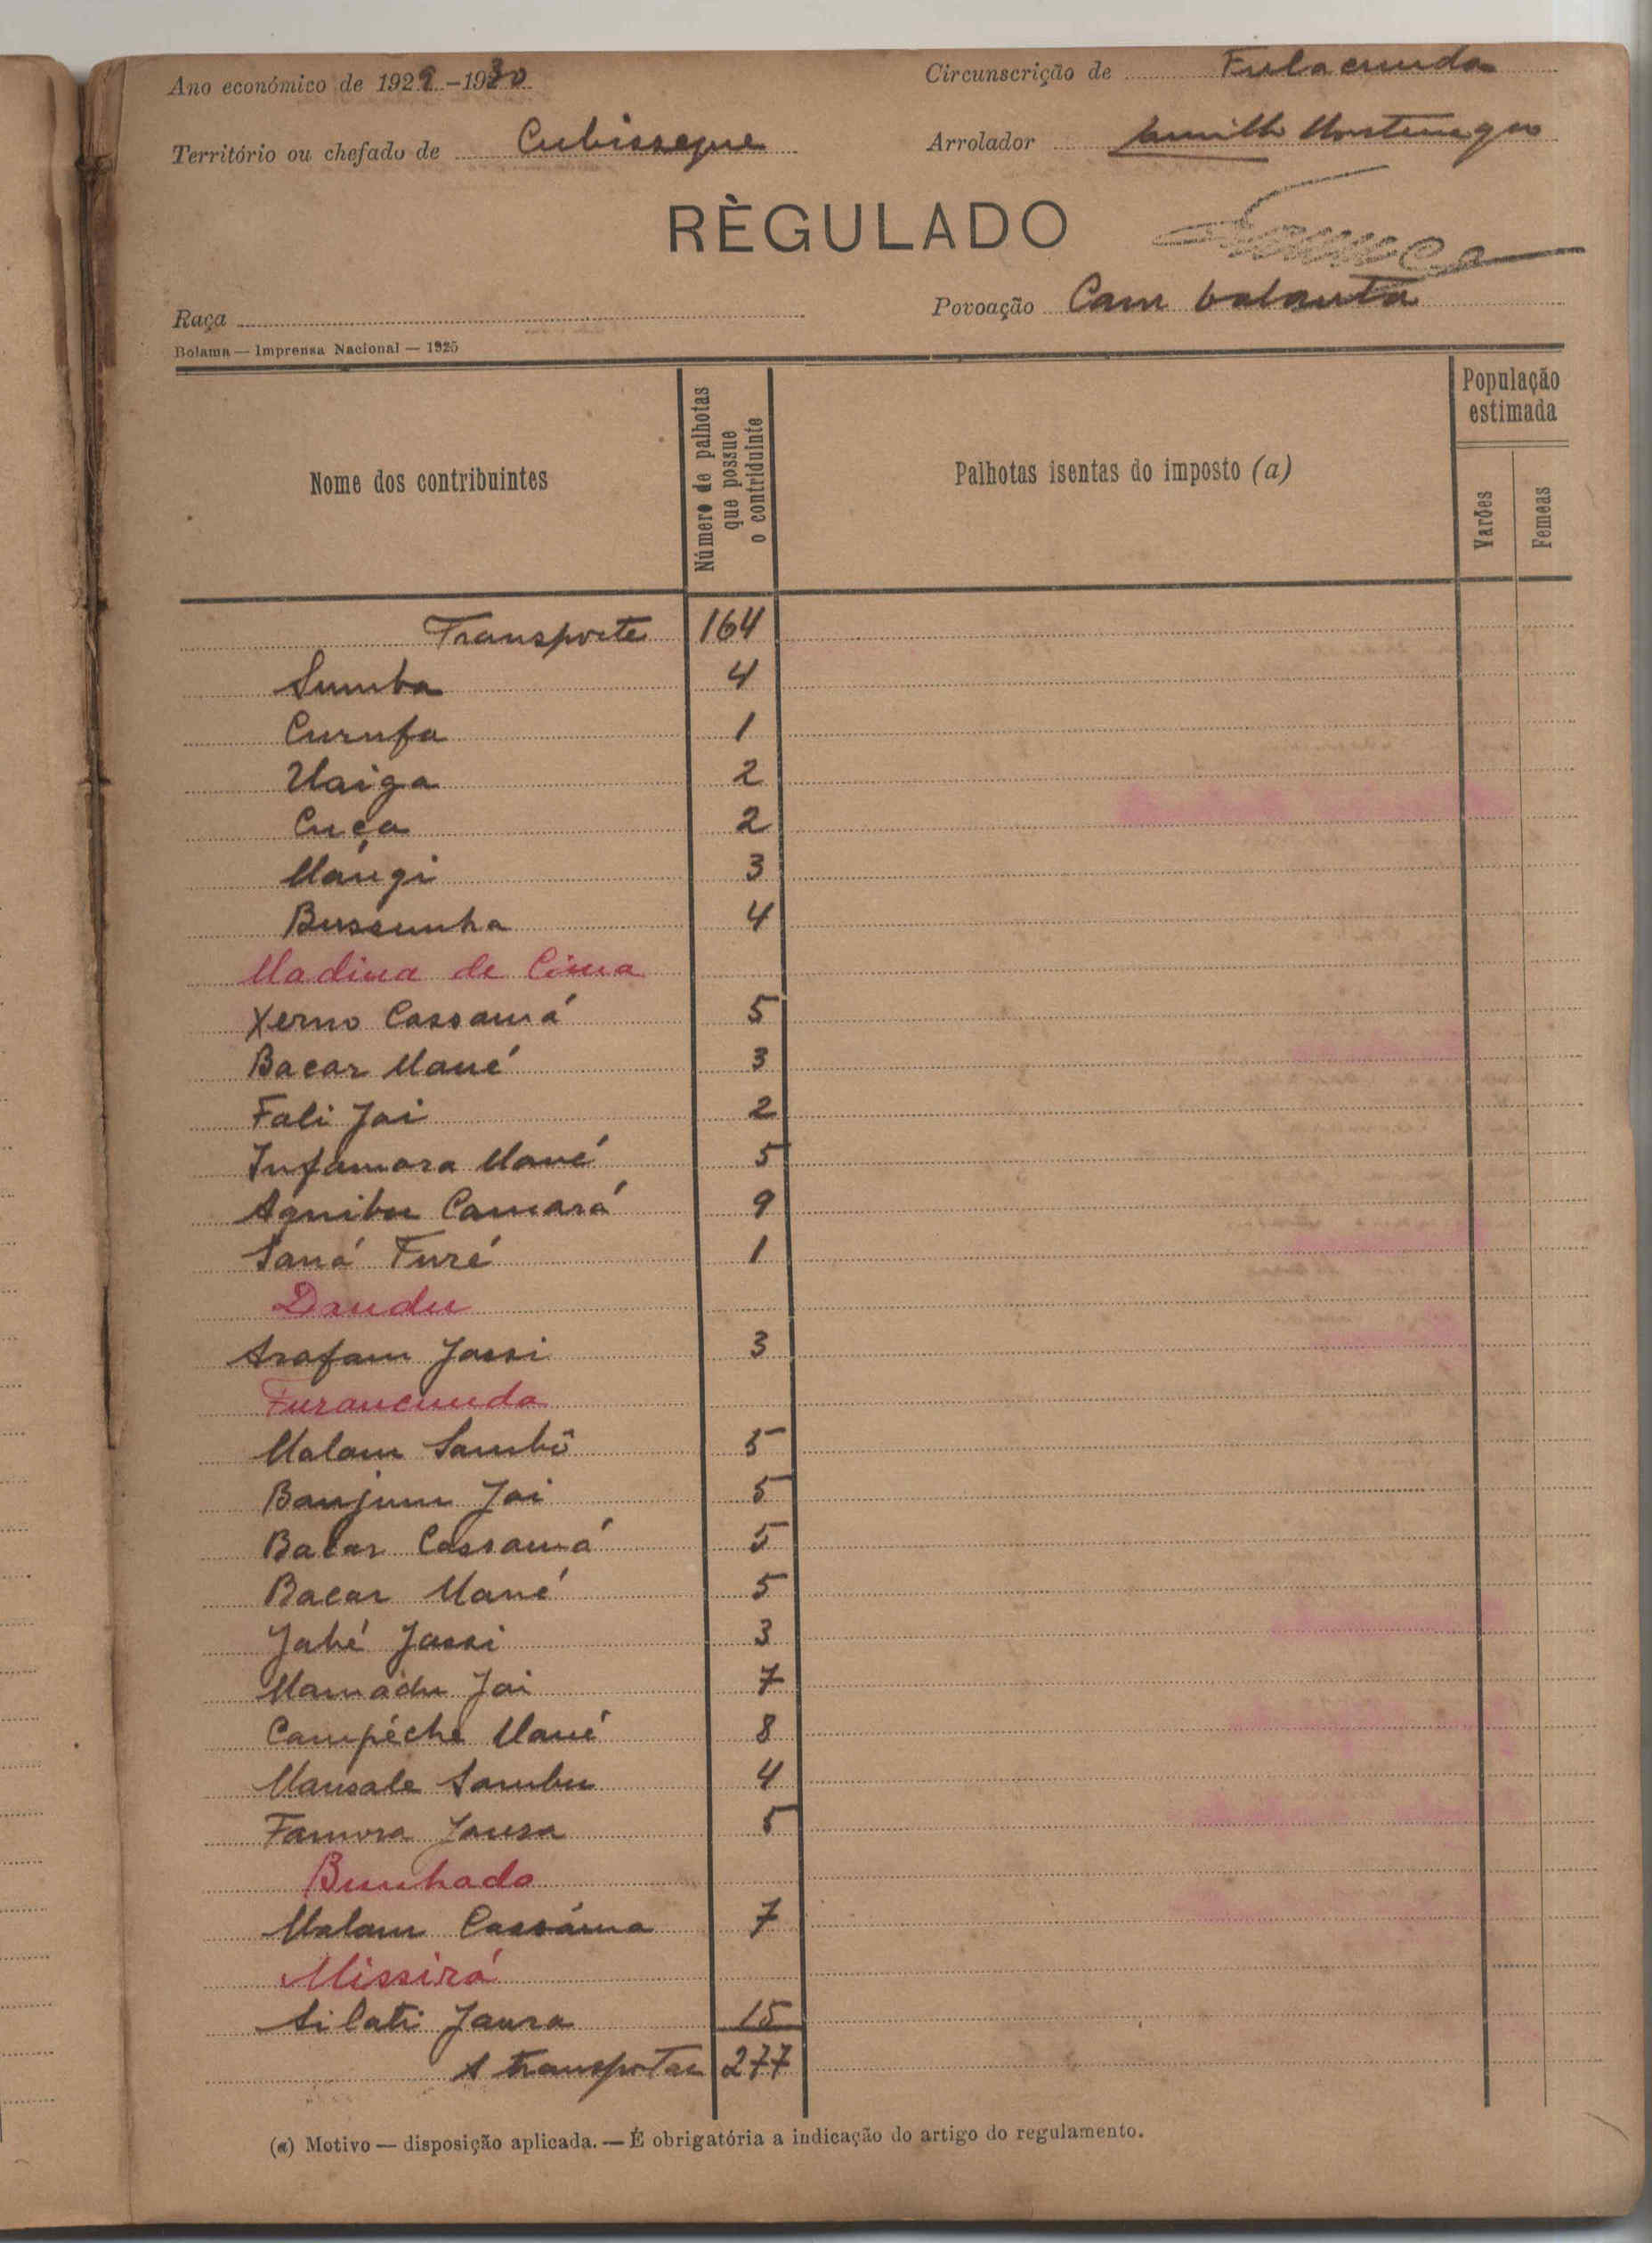 Ano económico de 1929-1930
Circunscrição de Fulacunda
Território ou chefado de Cubisseque
Arrolador Camillo Montenegro
RÈGULADO
Raça
Povoação Cam balanta
Bolama — Imprensa Nacional — 1925
Nome dos contribuintes
Número de palhotas que possue o contriduinte
Palhotas isentas do imposto (a)
População estimada
Varões
Femeas
Transporte 164
Sumba 4
Curufa 1
Uaiga 2
Cuça 2
Mángi 3
Bussunha 4
Madina de Cima
Xerno Cassamá 5
Bacar Mané 3
Fali Jai 2
Infamara Mané 5
Agnibu Camará 9
Saná Turé 1
Dandu
Arafam Jassi 3
Turancunda
Malam Sambú 5
Banjum Jai 5
Bacar Cassamá 5
Bacar Mané 5
Jabé Jassi 3
Mamadu Jai 7
Campéche Mané 8
Mansale Sambu 4
Famora Jansa 5
Bunhado
Malam Cassáma 7
Missirá
Silati Jaura 15
A transportar 277
(a) Motivo — disposição aplicada. — É obrigatória a indicação do artigo do regulamento.